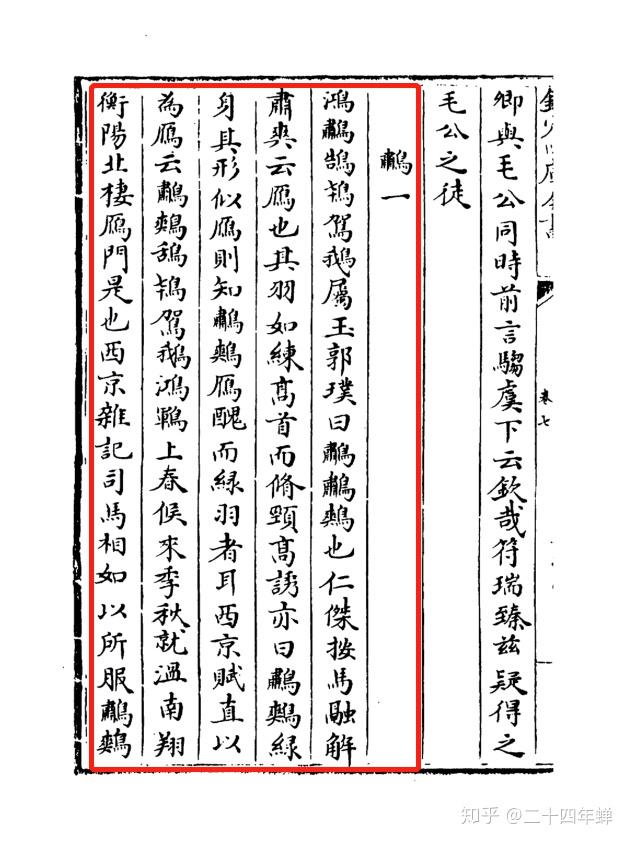 卷七
卿與毛公同時前言騶虞下云欽哉符瑞臻兹疑得之
毛公之徒
鷫一
鴻鷫鵠鴇鴐鵝屬玉郭璞曰鷫鷫鷞也仁傑按馬融解
肅爽云鴈也其羽如練高首而脩頸高誘亦曰鷫鷞緑
身其形似鴈則知鷫鷞鴈醜而緑羽者耳西京賦直以
為鴈云鷫鷞鴰鴇鴐鵝鴻鶤上春候來季秋就温南翔
衡陽北棲鴈門是也西京雜記司馬相如以所服鷫鷞
知乎 @二十四年蝉